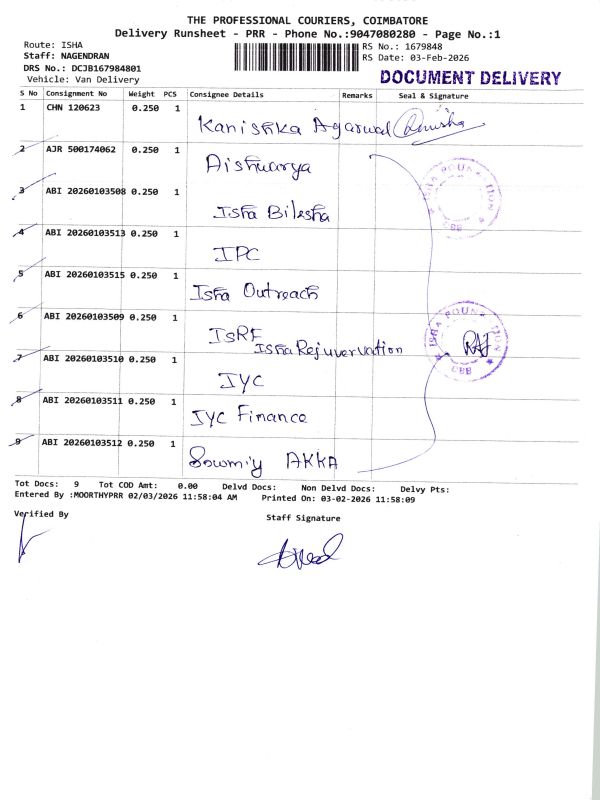 THE PROFESSIONAL COURIERS, COIMBATORE
Delivery Runsheet - PRR - Phone No.:9047080280 - Page No.:1
Route: ISHA
Staff: NAGENDRAN
DRS No.: DCJB167984801
Vehicle: Van Delivery
RS No.: 1679848
RS Date: 03-Feb-2026
DOCUMENT DELIVERY
S No Consignment No Weight PCS Consignee Details Remarks Seal & Signature
1 CHN 120623 0.250 1 Kanishka Agarwal
2 AJR 500174062 0.250 1 Aishwarya
3 ABI 20260103508 0.250 1 Isha Bilesha
4 ABI 20260103513 0.250 1 IPC
5 ABI 20260103515 0.250 1 Isha Outreach
6 ABI 20260103509 0.250 1 ISRF
Isha Rejuvervation
7 ABI 20260103510 0.250 1 IYC
8 ABI 20260103511 0.250 1 IYC Finance
9 ABI 20260103512 0.250 1 Sowmiy AKKA
ISHA FOUNDATION
ISHA FOUNDATION
Tot Docs: 9 Tot COD Amt: 0.00 Delvd Docs: Non Delvd Docs: Delvy Pts:
Entered By :MOORTHYPRR 02/03/2026 11:58:04 AM Printed On: 03-02-2026 11:58:09
Verified By
Staff Signature